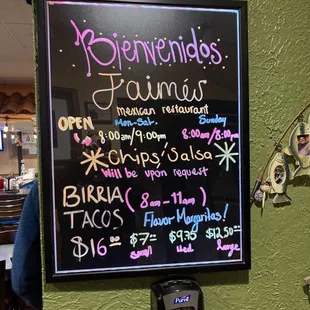 Bienvenidos
Jaimes
mexican restaurant
OPEN Mon-Sat. Sunday
8:00am/9:00pm 8:00am/8:00pm
Chips/Salsa
Will be upon request
BIRRIA (8am-11am)
TACOS Flavor Margaritas!
$16.00 $7.00 $9.75 $12.50
small Med large
Purell